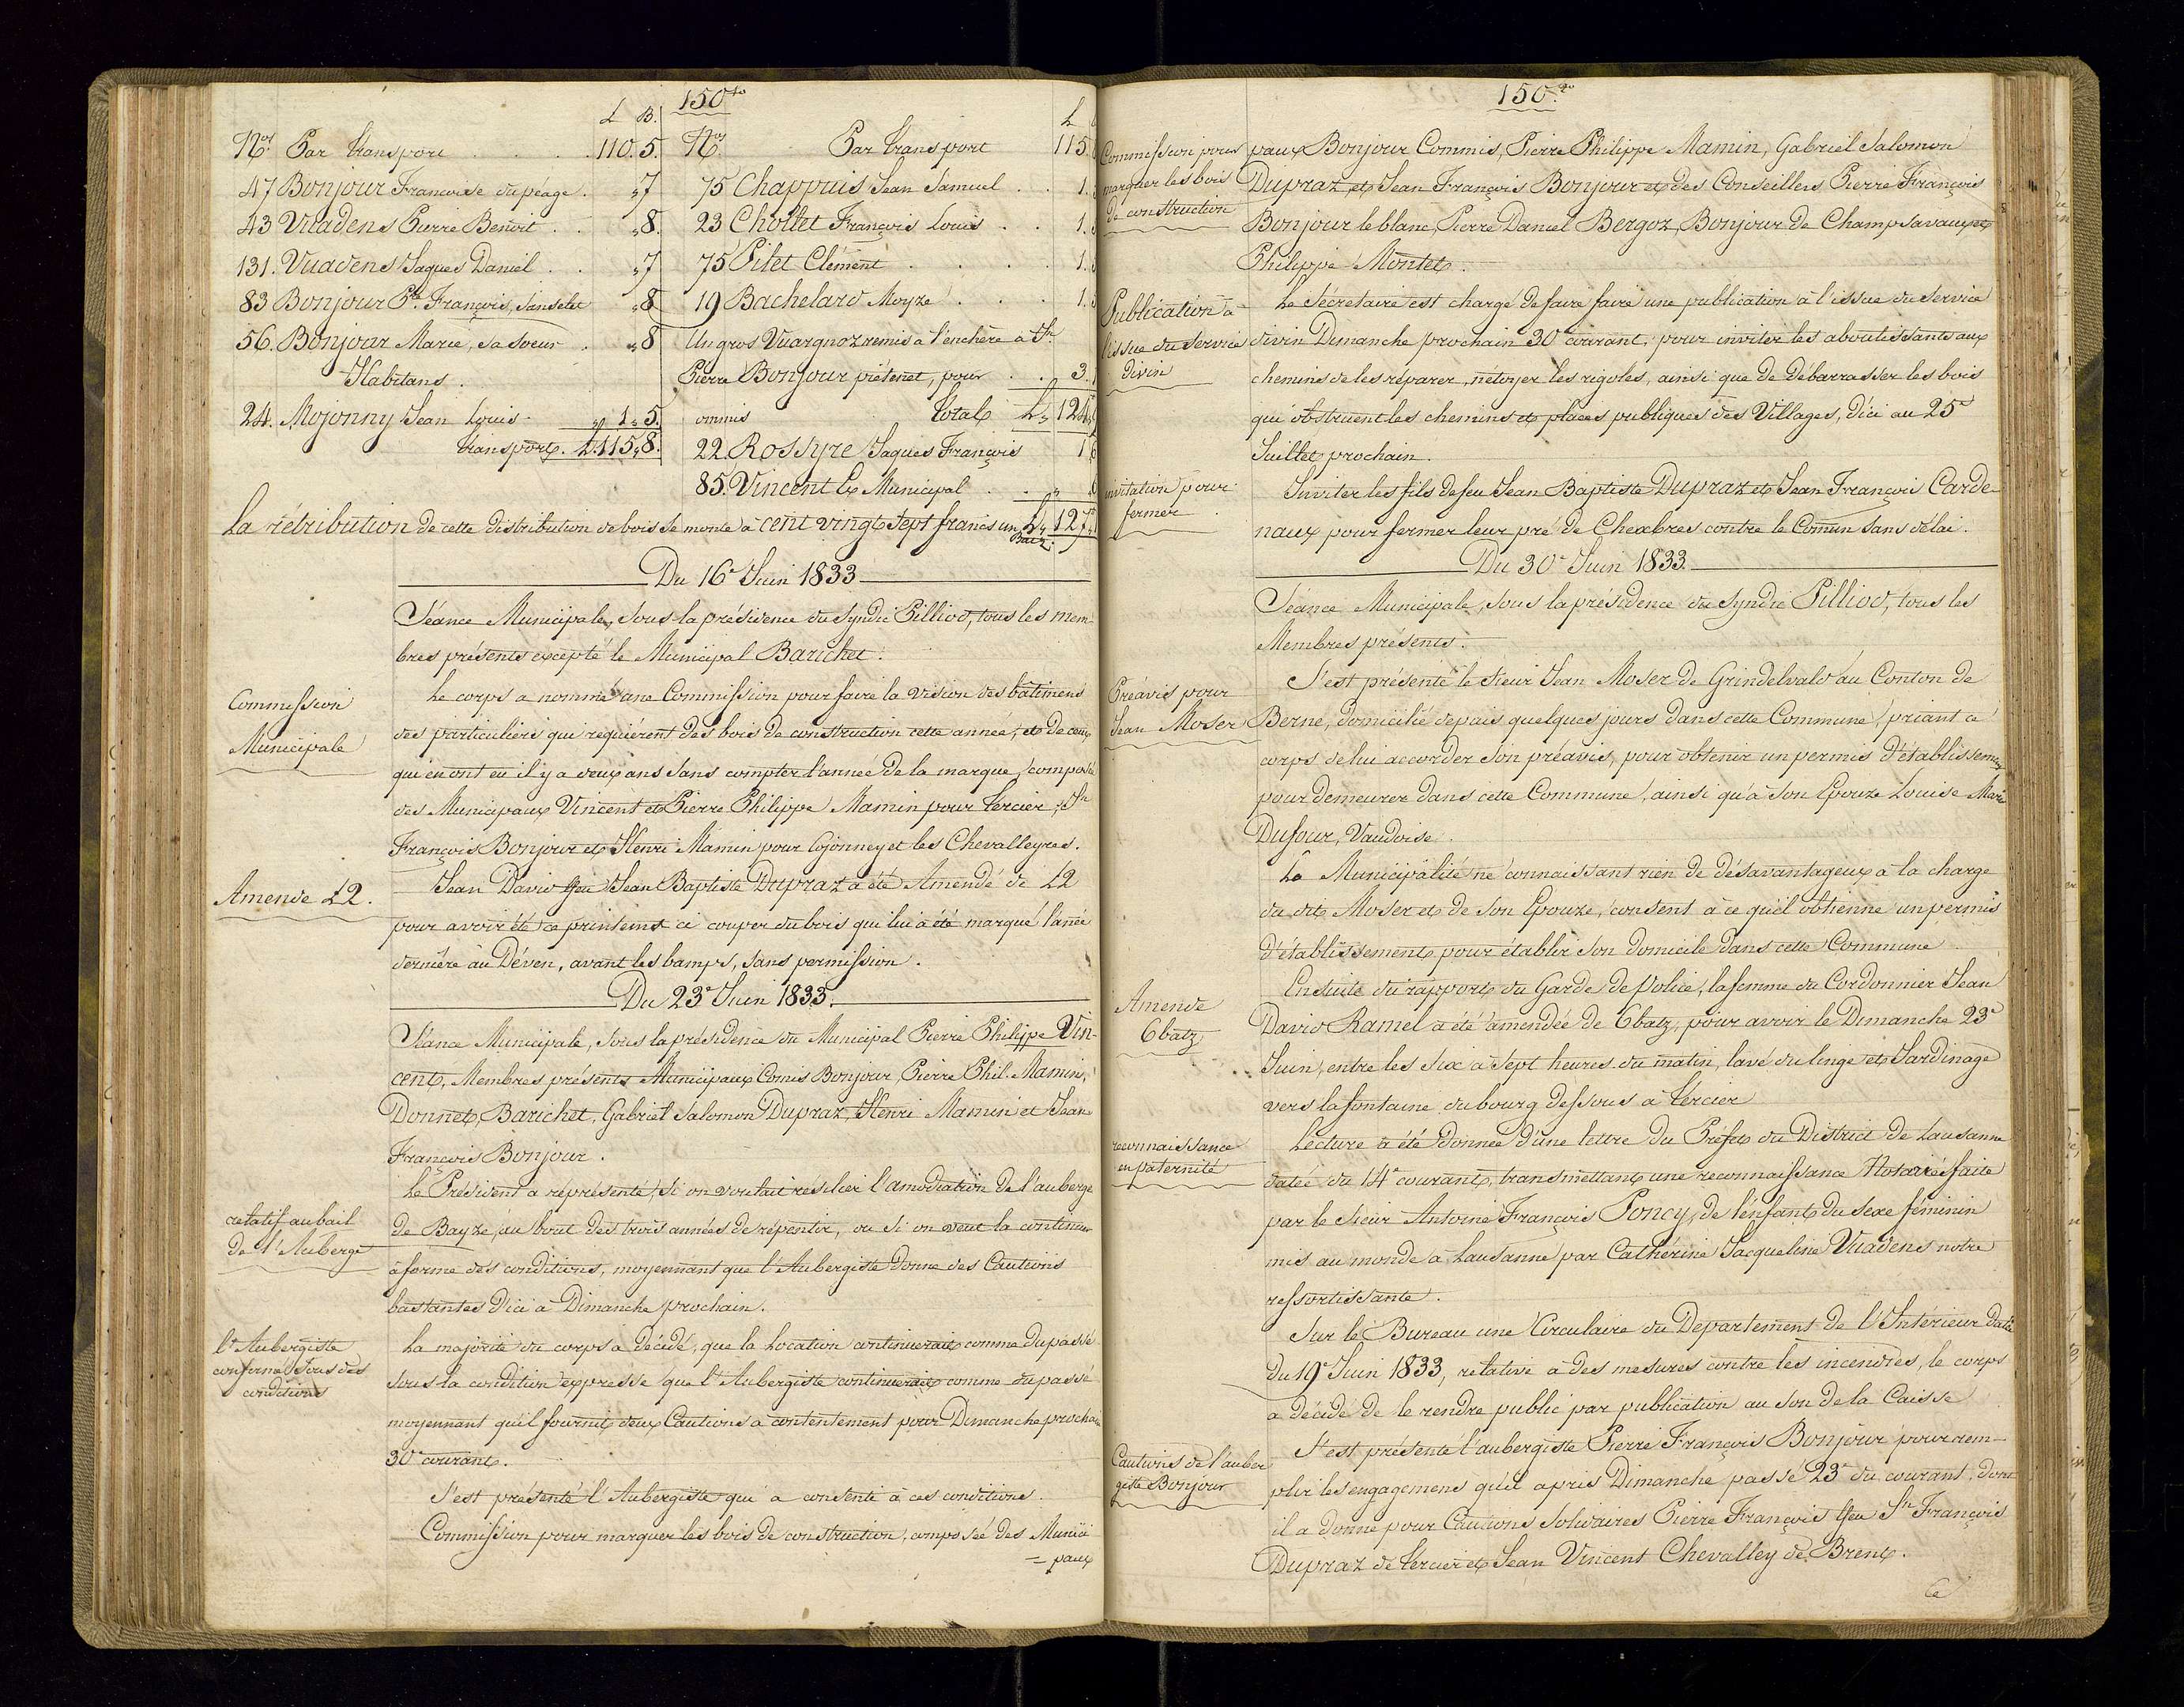 150.to
L B.
Nos Par transport . . . . 110. 5.
47 Bonjour Francoise du péage . „ 7
43 Vuadens Pierre Benoit . . „ 8.
131. Vuadens Jaques Daniel . . „ 7
83 Bonjour Pre. François, Sanselet „ 8
56. Bonjour Marie, sa soeur . „ 8
Habitans.
24. Mojonny Jean Louis . „ 1 „ 5.
transport. L. 115 „ 8.
L
Nos Par transport 115.
75 Chappuis Jean Samuel . . 1.
23 Chollet François Louis . . 1.
75 Pilet Clément . . . . 1.
19 Bachelard Moyze . . . 1.
Un gros Vuargnoz remis à l'enchère à Sr.
Pierre Bonjour piétenet, pour . . 3.
ommis Total L „ 124
22. Rossyre Jaques François 1
85. Vincent Ex Municipal . . „
La rétribution de cette distribution de bois se monte à cent vingt sept francs un L „ 127
Batz.
Du 16e Juin 1833
Séance Municipale, sous la présidence du Syndic Pilliod, tous les mem-
bres présents excepté le Municipal Barichet.
Commission
Municipale
Le corps a nommé une Commission pour faire la vision des bâtimens
des particuliers qui requièrent des bois de construction cette année, et de ceux
qui en ont eu il y a deux ans sans compter l'année de la marque, composée
des Municipaux Vincent et Pierre Philippe Mamin pour Tercier, Jn
François Bonjour et Henri Mamin pour Cojonney et les Chevalleyres.
Amende L2.
Jean David feu Jean Baptiste Dupraz a été Amendé de L2
pour avoir été ce printems ci couper du bois qui lui a été marqué l'anée
dernière au Déven, avant les bamps, sans permission.
Du 23e Juin 1833.
Séance Municipale, sous la présidence du Municipal Pierre Philippe Vin-
cent, Membres présents Municipaux Comis Bonjour, Pierre Phil. Mamin,
Donnet, Barichet, Gabriel Salomon Dupraz, Henri Mamin et Jean
François Bonjour.
relatif au bail
de l'Auberge
Le Président a réprésenté, si on voulait résilier l'amodiation de l'auberge
de Bayze, au bout des trois années de répentir, ou si on veut la continuer
à forme des conditions, moyennant que l'Aubergiste donne des Cautions
bastantes d'ici à Dimanche prochain.
l'Aubergiste
confirmé sous des
conditions
La majorité du corps a décidé, que la Location continuerait comme du passé
sous la condition expresse que l'Aubergiste continuerait comme du passé
moyennant qu'il fournit deux Cautions a contentement pour Dimanche prochain
30e courant.
S'est présenté l'Aubergiste qui a consenti à ces conditions.
Commission pour marquer les bois de construction, composée des Munici
= paux
150.to
Commission pour
marquer les bois
de construction
paux Bonjour Commis, Pierre Philippe Mamin, Gabriel Salomon
Dupraz et Jean François Bonjour et des Conseillers Pierre François
Bonjour le blanc, Pierre Daniel Bergoz, Bonjour de Champsavaux et
Philippe Montet.
Publication à
l'issue du service
divin
Le Sécretaire est chargé de faire faire une publication à l'issue du service
divin Dimanche prochain 30 courant, pour inviter les aboutissants aux
chemins de les réparer, nétoyer les rigoles, ainsi que de débarrasser les bois
qui obstruent les chemins et places publiques des Villages, d'ici au 25e
Juillet prochain.
invitation pour
fermer
Inviter les fils de feu Jean Baptiste Dupraz et Jean François Carde-
naux pour fermer leur pré de Chexbres contre le Comun sans délai.
Du 30e Juin 1833.
Séance Municipale, sous la présidence du Syndic Pilliod, tous les
Membres présents.
Préavis pour
Jean Moser
S'est présenté le Sieur Jean Moser de Grindelvald au Conton de
Berne, domicilié depuis quelques jours dans cette Commune, priant ce
corps de lui accorder son préavis, pour obtenir un permis d'établissement
pour demeurer dans cette Commune, ainsi qu'à son Epouze Louise Marie
Dufour, Vaudoise.
La Municipalité ne connaissant rien de désavantageux à la charge
du dit Moser et de son Epouze, consent à ce qu'il obtienne un permis
d'établissement pour établir son domicile dans cette Commune.
Amende
6 batz
Ensuite du rapport du Garde de Police, la femme du Cordonnier Jean
David Ramel a été amendée de 6 batz, pour avoir le Dimanche 23e
Juin, entre les six à sept heures du matin, lavé du linge et Jardinage
vers la fontaine du bourg dessous à Tercier
reconnaissance
en paternité
Lecture a été donnée d'une lettre du Préfet du District de Lausanne
datée du 14e courant, transmettant une reconnaissance Notariée faite
par le Sieur Antoine François Poncy, de l'enfant du sexe féminin
mis au monde à Lausanne par Cathérine Jacqueline Vuadens notre
ressortissante.
Sur le Bureau une Circulaire du Departement de l'Intérieur daté
du 19e Juin 1833, relative à des mesures contre les incendies, le corps
a décidé de le rendre public par publication au son de la Caisse
Cautions de l'auber
giste Bonjour
S'est présenté l'aubergiste Pierre François Bonjour pour rem-
plir les engagemens qu'il a pris Dimanche passé 23e du courant, dont
il a donné pour Cautions Solidaires Pierre François feu Jn François
Dupraz de Tercier et Jean Vincent Chevalley de Brent.
Ce